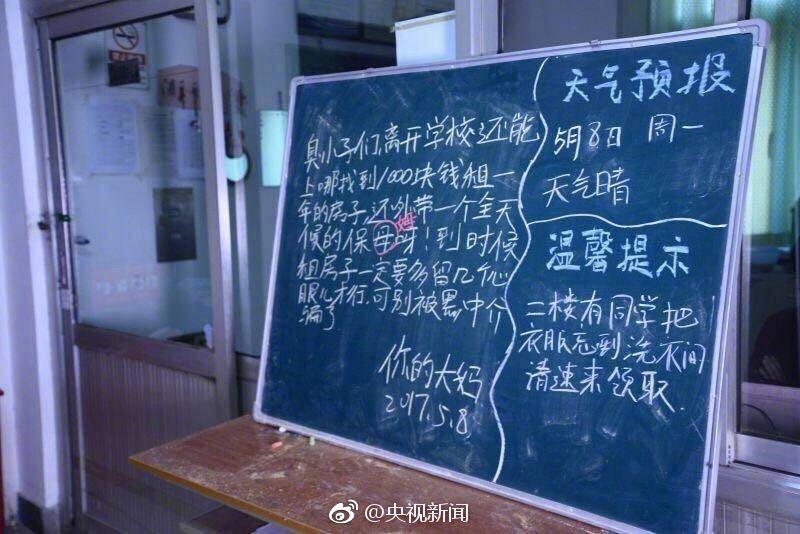 臭小子们,离开学校还能
上哪找到1000块钱租一
年的房子,还外带一个全天
候的保母呦!到时候
姆
租房子一定要多留几个心
眼儿才行.可别被黑中介
骗了
你的大妈
2017.5.8
天气预报
5月8日 周一
天气晴
温馨提示
二楼有同学把
衣服忘到洗衣间
请速来领取.
@央视新闻